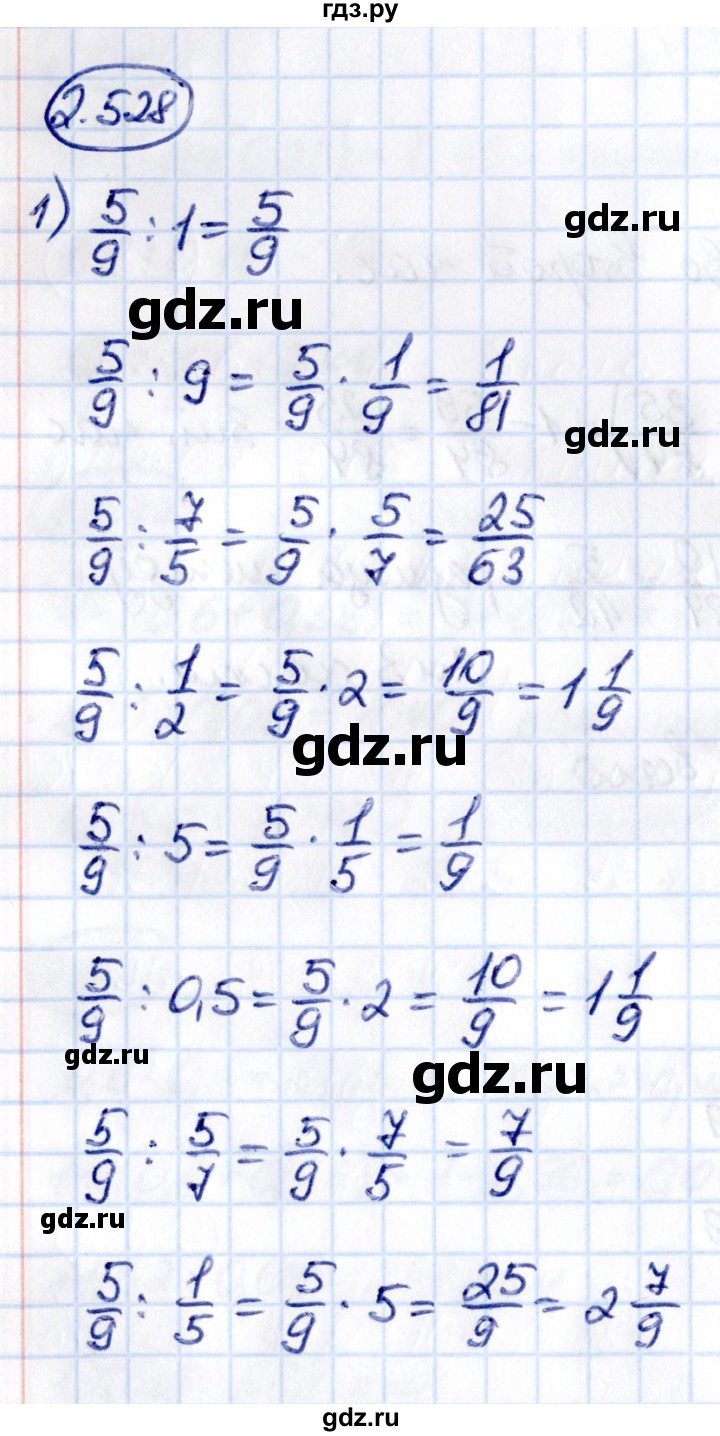 гдз.ру
2.528
1) 5/9 : 1 = 5/9
gdz.ru
gdz.ru
5/9 : 9 = 5/9 · 1/9 = 1/81
gdz.ru
5/9 : 7/5 = 5/9 · 5/7 = 25/63
5/9 : 1/2 = 5/9 · 2 = 10/9 = 1 1/9
gdz.ru
5/9 : 5 = 5/9 · 1/5 = 1/9
5/9 : 0,5 = 5/9 · 2 = 10/9 = 1 1/9
gdz.ru
gdz.ru
5/9 : 5/7 = 5/9 · 7/5 = 7/9
gdz.ru
5/9 : 1/5 = 5/9 · 5 = 25/9 = 2 7/9
gdz.ru